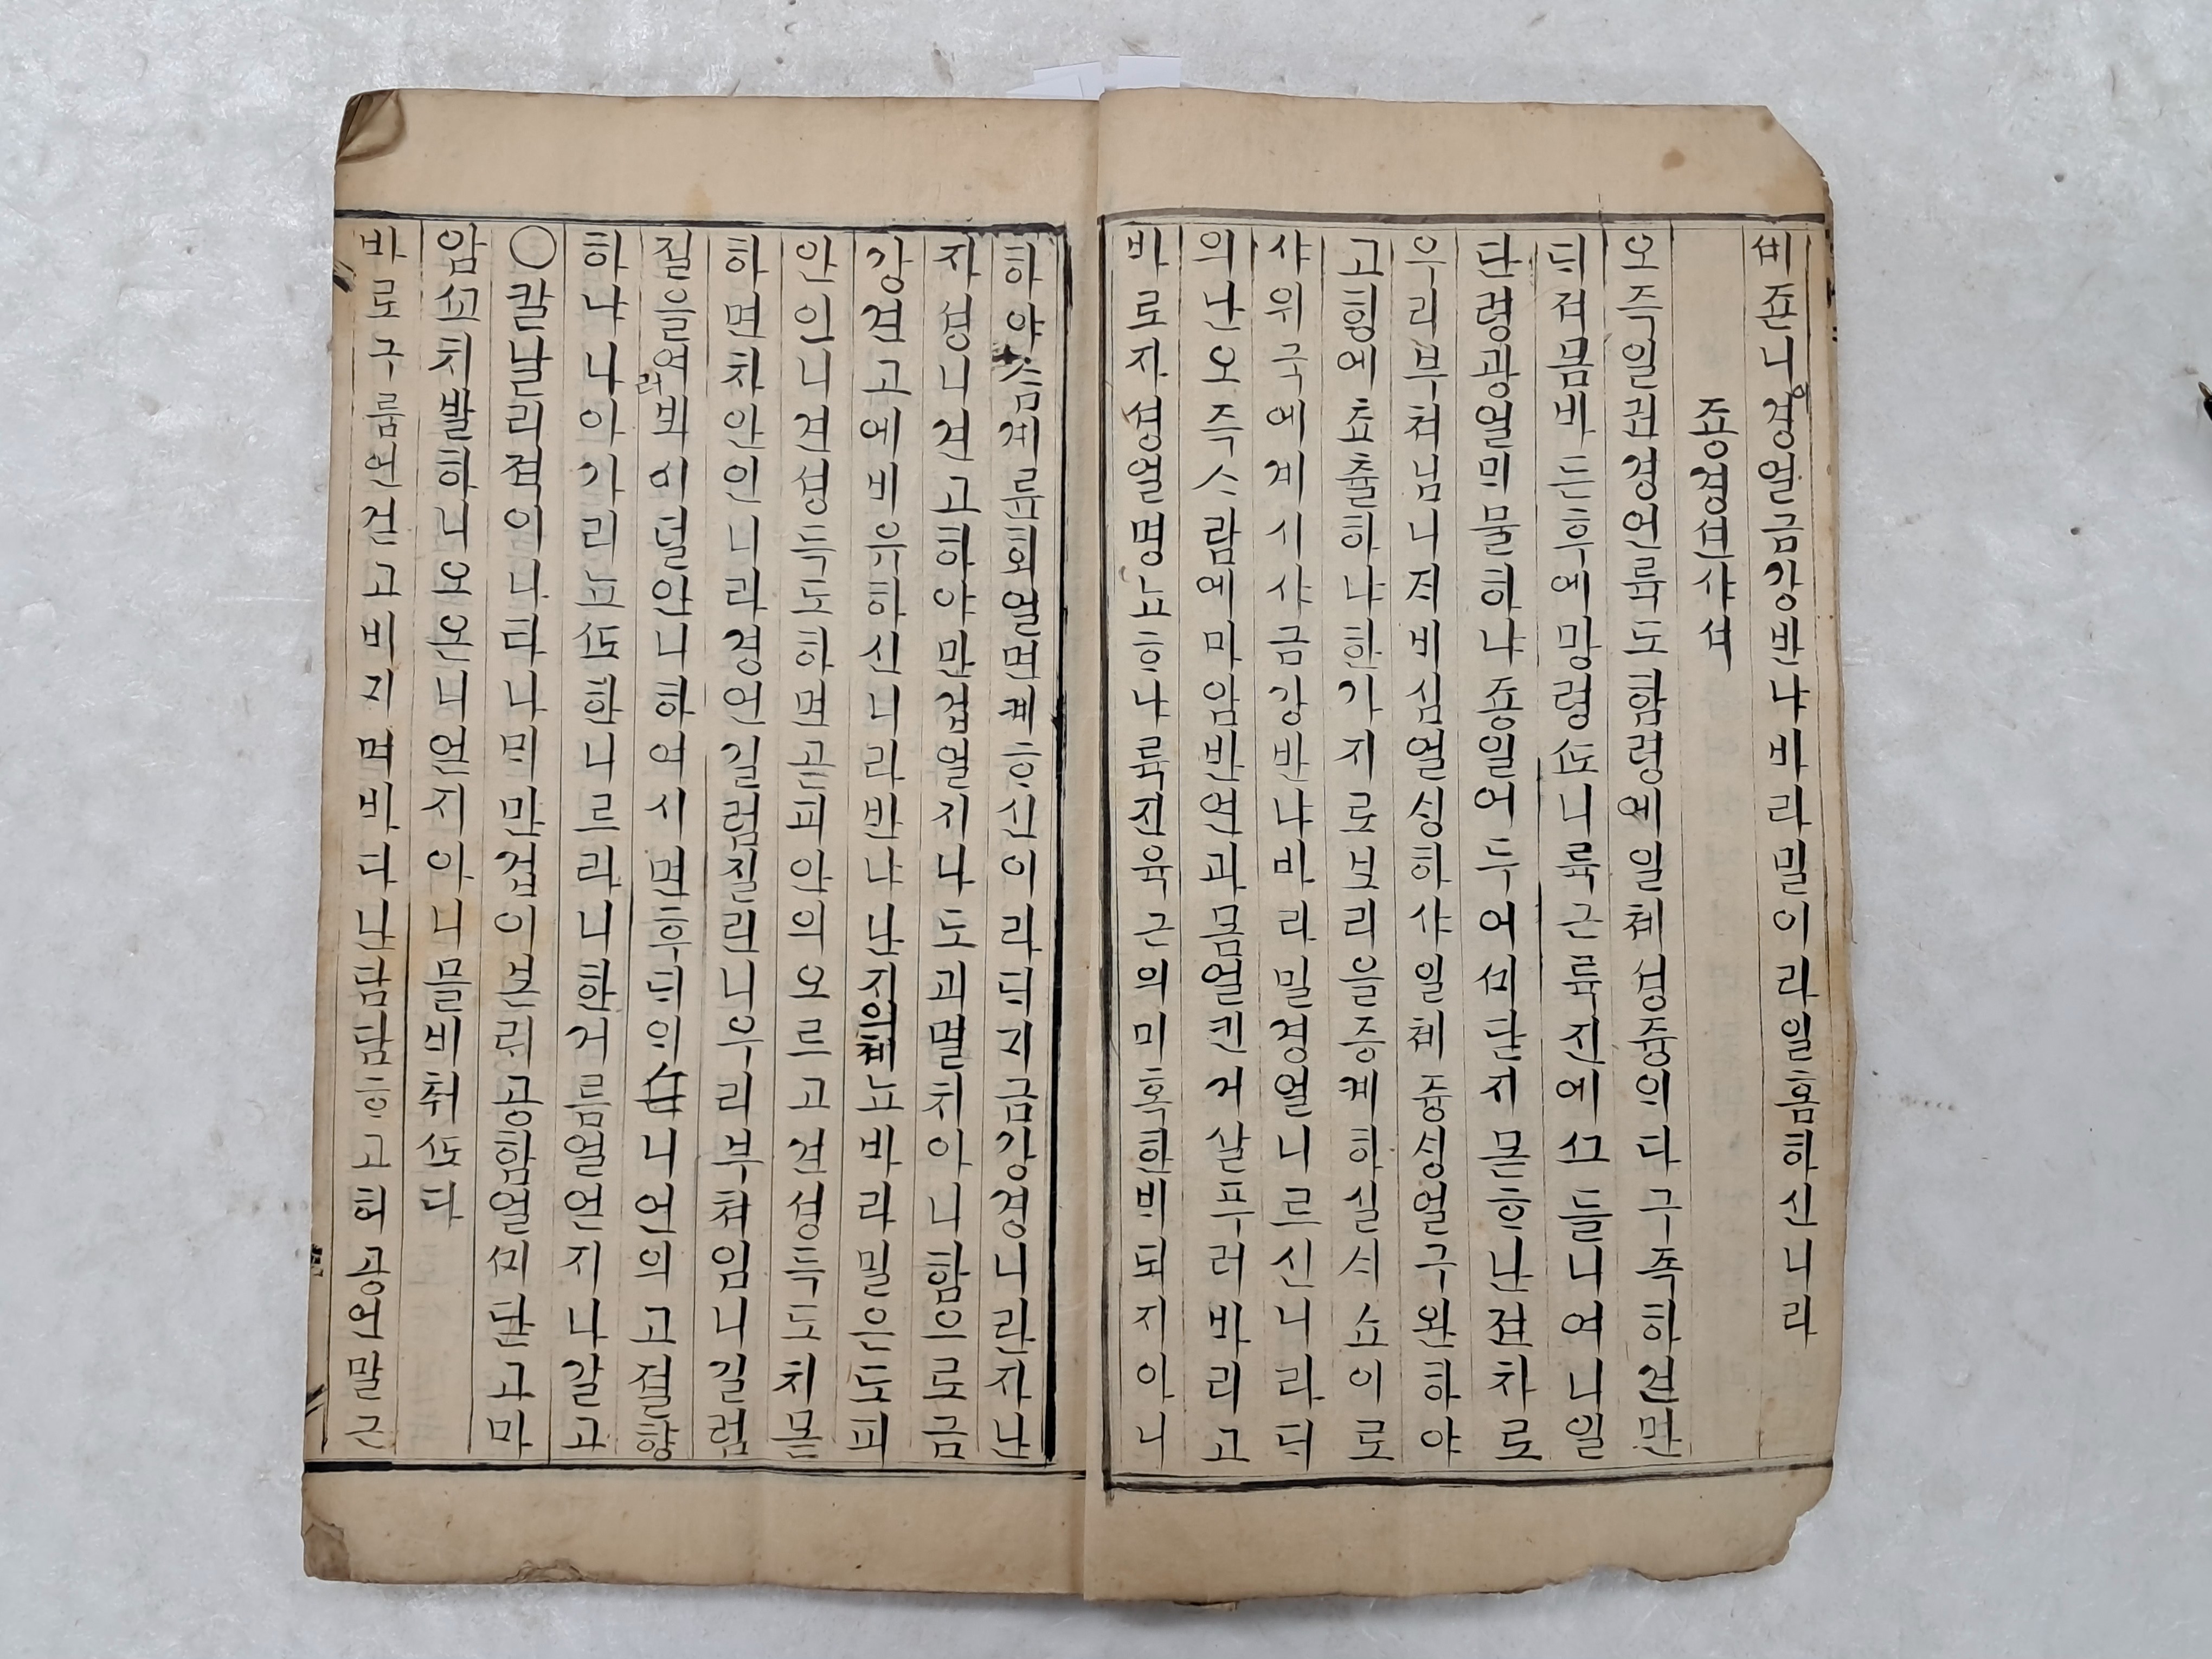 비죤니경얼금강반냐바라밀이라일홈하신니라
죵경션사셔
오즉일권경언륙도함령에일쳬셩즁의다구죡하견만
듸져몸바든후에망령도니륙근륙진에셔들니여니일
단령광얼믜몰하냐죵일어두어셔단지몯ᄒᆞ난젼차로
우리부쳐님니져비심얼싱하샤일쳬즁싱얼구완하야
고힝에쵸츌하냐한가지로보리을증케하실ᄉᆡ쇼이로
샤위국에계시샤금강반냐바리밀경얼니르신니라듸
의난오즉스람에마암반연과몸얼킨거살푸러바리고
바로자셩얼명뇨ᄒᆞ냐륙진육근의미혹한비되지아니
하야슴계륜회얼면케ᄒᆞ신이라듸지금강경니란자난
자셩니견고하야만겁얼지나도괴멸치아니함으로금
강견고에비유하신니라반냐난지혜뇨바라밀은도피
안인니견셩득도하면곧피안의오르고견셩득도치몯
하면차안인니라경언길럼진린니우리부쳐임니길럼
질을여라바이덜안니하여시면후듸의습니언의고졀향
하냐니아가리뇨ᄯᅩ한니르라니한거름얼언지나갈고
○칼날리젼이니타나믹만겁이본릐공함얼셔단고마
암셕치발하니오온니얻지아니믈비취ᄯᅩ다
바로구룸언걷고비지며바다난담담ᄒᆞ고허공언말근